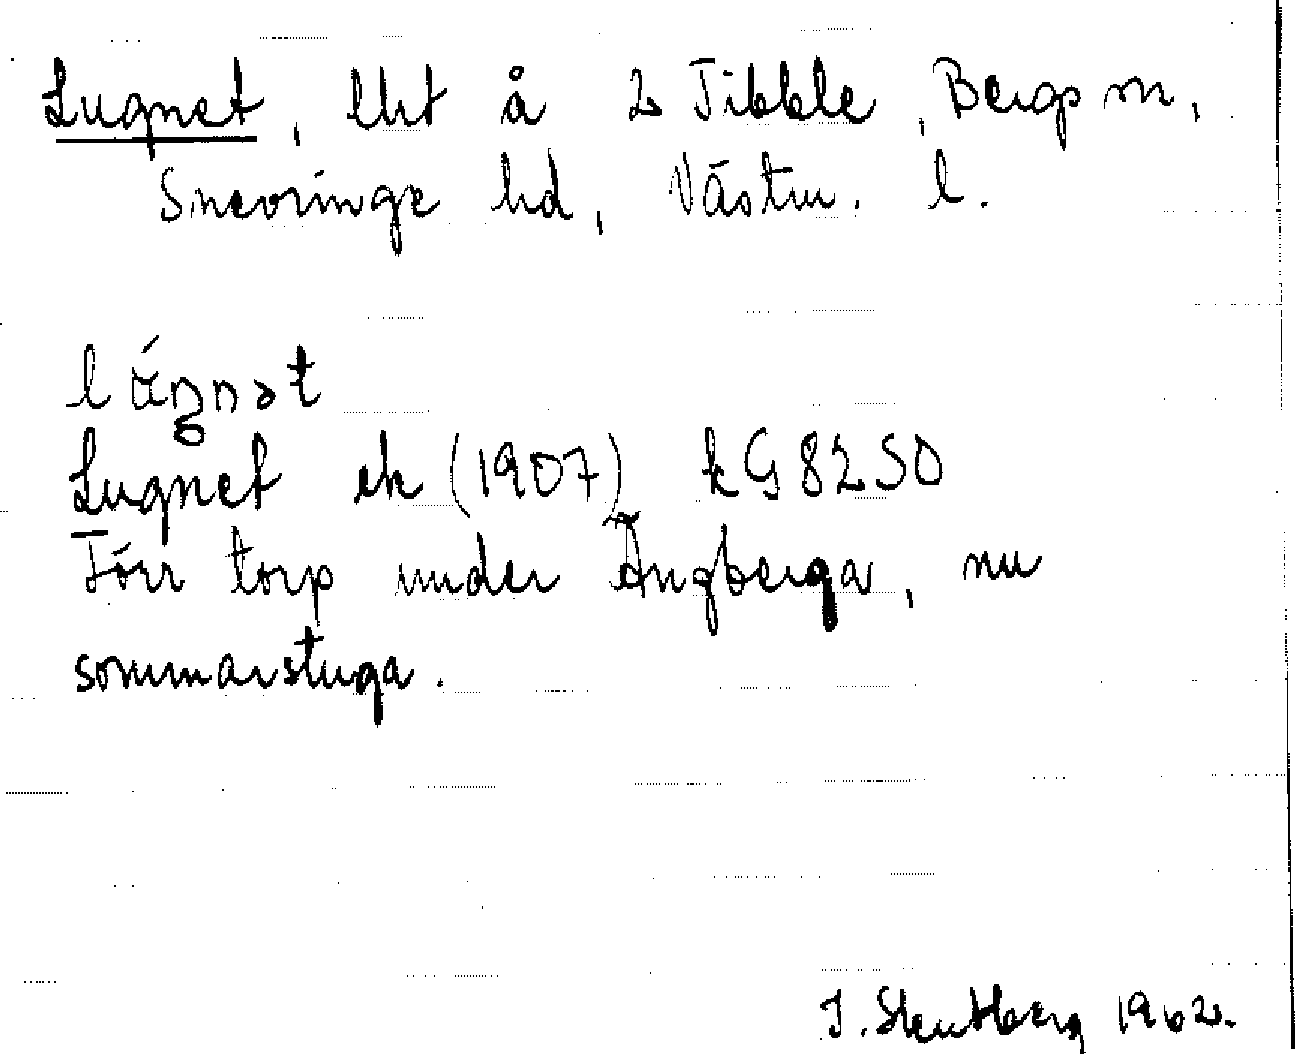 Lugnet, lht å 2 Tibble, Bergs sn,
Snevringe hd, Västm. l.
Lugnet ek (1907) kG 8250
Förr torp under Ängberga, nu
sommarstuga.
J. Stentberg 1962.